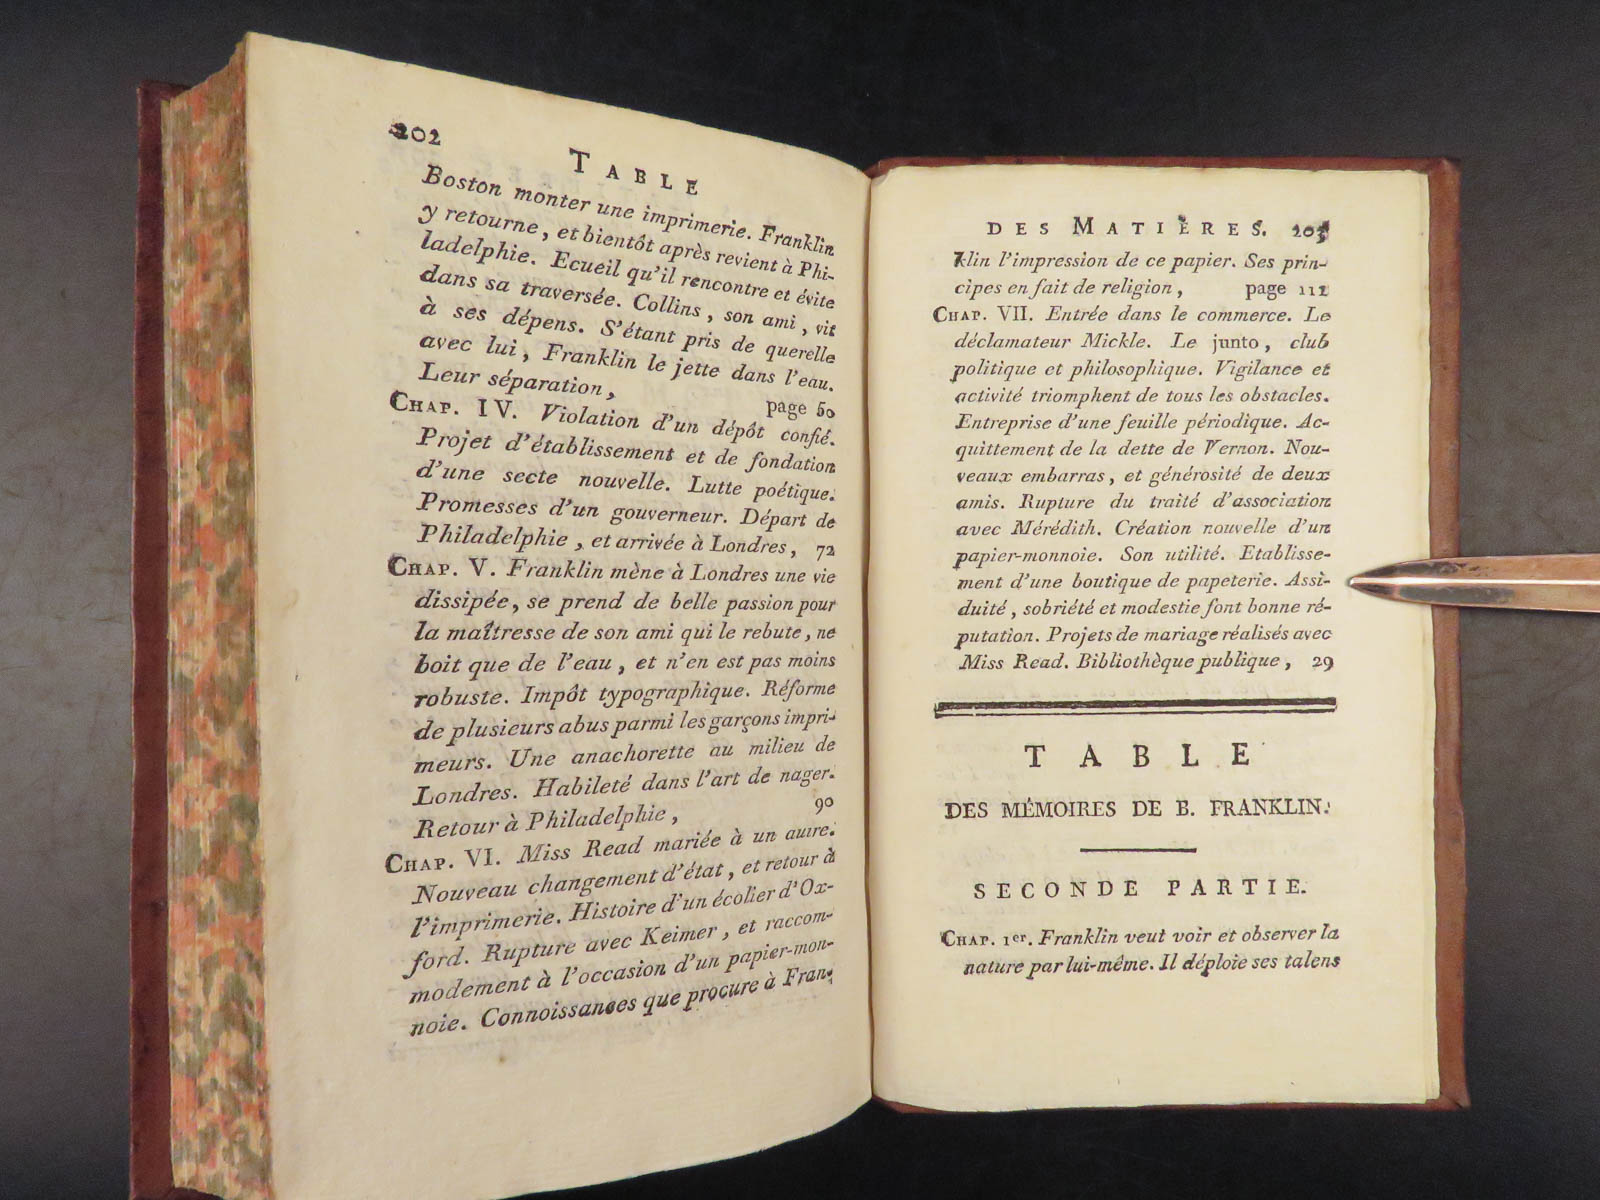 202
TABLE
Boston monter une imprimerie. Franklin
y retourne, et bientôt après revient à Phi-
ladelphie. Ecueil qu'il rencontre et évite
dans sa traversée. Collins, son ami, vit
à ses dépens. S'étant pris de querelle
avec lui, Franklin le jette dans l'eau.
Leur séparation, page 50
CHAP. IV. Violation d'un dépôt confié.
Projet d'établissement et de fondation
d'une secte nouvelle. Lutte poétique.
Promesses d'un gouverneur. Départ de
Philadelphie, et arrivée à Londres, 72
CHAP. V. Franklin mène à Londres une vie
dissipée, se prend de belle passion pour
la maîtresse de son ami qui le rebute, ne
boit que de l'eau, et n'en est pas moins
robuste. Impôt typographique. Réforme
de plusieurs abus parmi les garçons impri-
meurs. Une anachorette au milieu de
Londres. Habileté dans l'art de nager.
Retour à Philadelphie, 90
CHAP. VI. Miss Read mariée à un autre.
Nouveau changement d'état, et retour à
l'imprimerie. Histoire d'un écolier d'Ox-
ford. Rupture avec Keimer, et raccom-
modement à l'occasion d'un papier-mon-
noie. Connoissances que procure à Fran-
DES MATIÈRES. 203
klin l'impression de ce papier. Ses prin-
cipes en fait de religion, page 112
CHAP. VII. Entrée dans le commerce. Le
déclamateur Mickle. Le junto, club
politique et philosophique. Vigilance et
activité triomphent de tous les obstacles.
Entreprise d'une feuille périodique. Ac-
quittement de la dette de Vernon. Nou-
veaux embarras, et générosité de deux
amis. Rupture du traité d'association
avec Mérédith. Création nouvelle d'un
papier-monnoie. Son utilité. Etablisse-
ment d'une boutique de papeterie. Assi-
duité, sobriété et modestie font bonne ré-
putation. Projets de mariage réalisés avec
Miss Read. Bibliothèque publique, 29
TABLE
DES MÉMOIRES DE B. FRANKLIN.
SECONDE PARTIE.
CHAP. 1er. Franklin veut voir et observer la
nature par lui-même. Il déploie ses talens